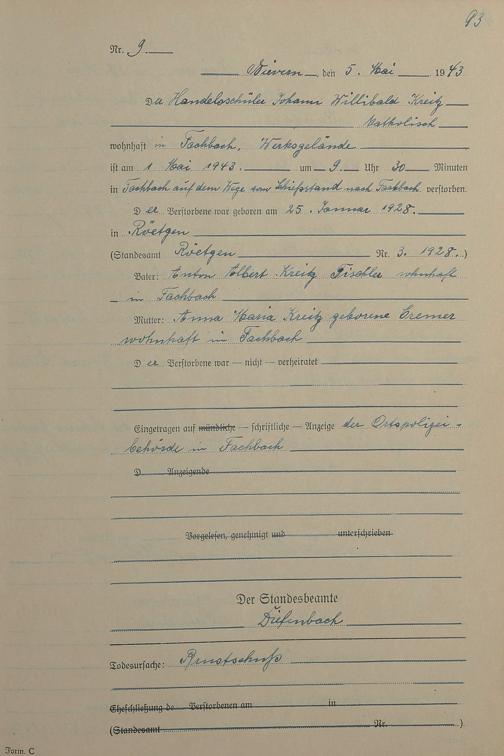 93
Nr. 9.
Nievern, den 5. Mai 1943
Da Handelsschüler Johann Willibald Kreitz
Katholisch
wohnhaft in Fachbach, Werksgelände
ist am 1 Mai 1943. um 9 Uhr 30 Minuten
in Fachbach auf dem Wege vom Schießstand nach Fachbach verstorben.
Der Verstorbene war geboren am 25. Januar 1928.
in Röetgen
(Standesamt Röetgen Nr. 3. 1928.)
Vater: Anton Albert Kreitz Tischler wohnhaft
in Fachbach
Mutter: Anna Maria Kreitz geborene Cremer
wohnhaft in Fachbach
Der Verstorbene war — nicht — verheiratet
Eingetragen auf mündliche — schriftliche — Anzeige der Ortspolizei-
behörde in Fachbach
D Anzeigende
Vorgelesen, genehmigt und unterschrieben
Der Standesbeamte
Diefenbach
Todesursache: Brustschuß
Eheschließung de Verstorbenen am in
(Standesamt Nr. )
Form. C